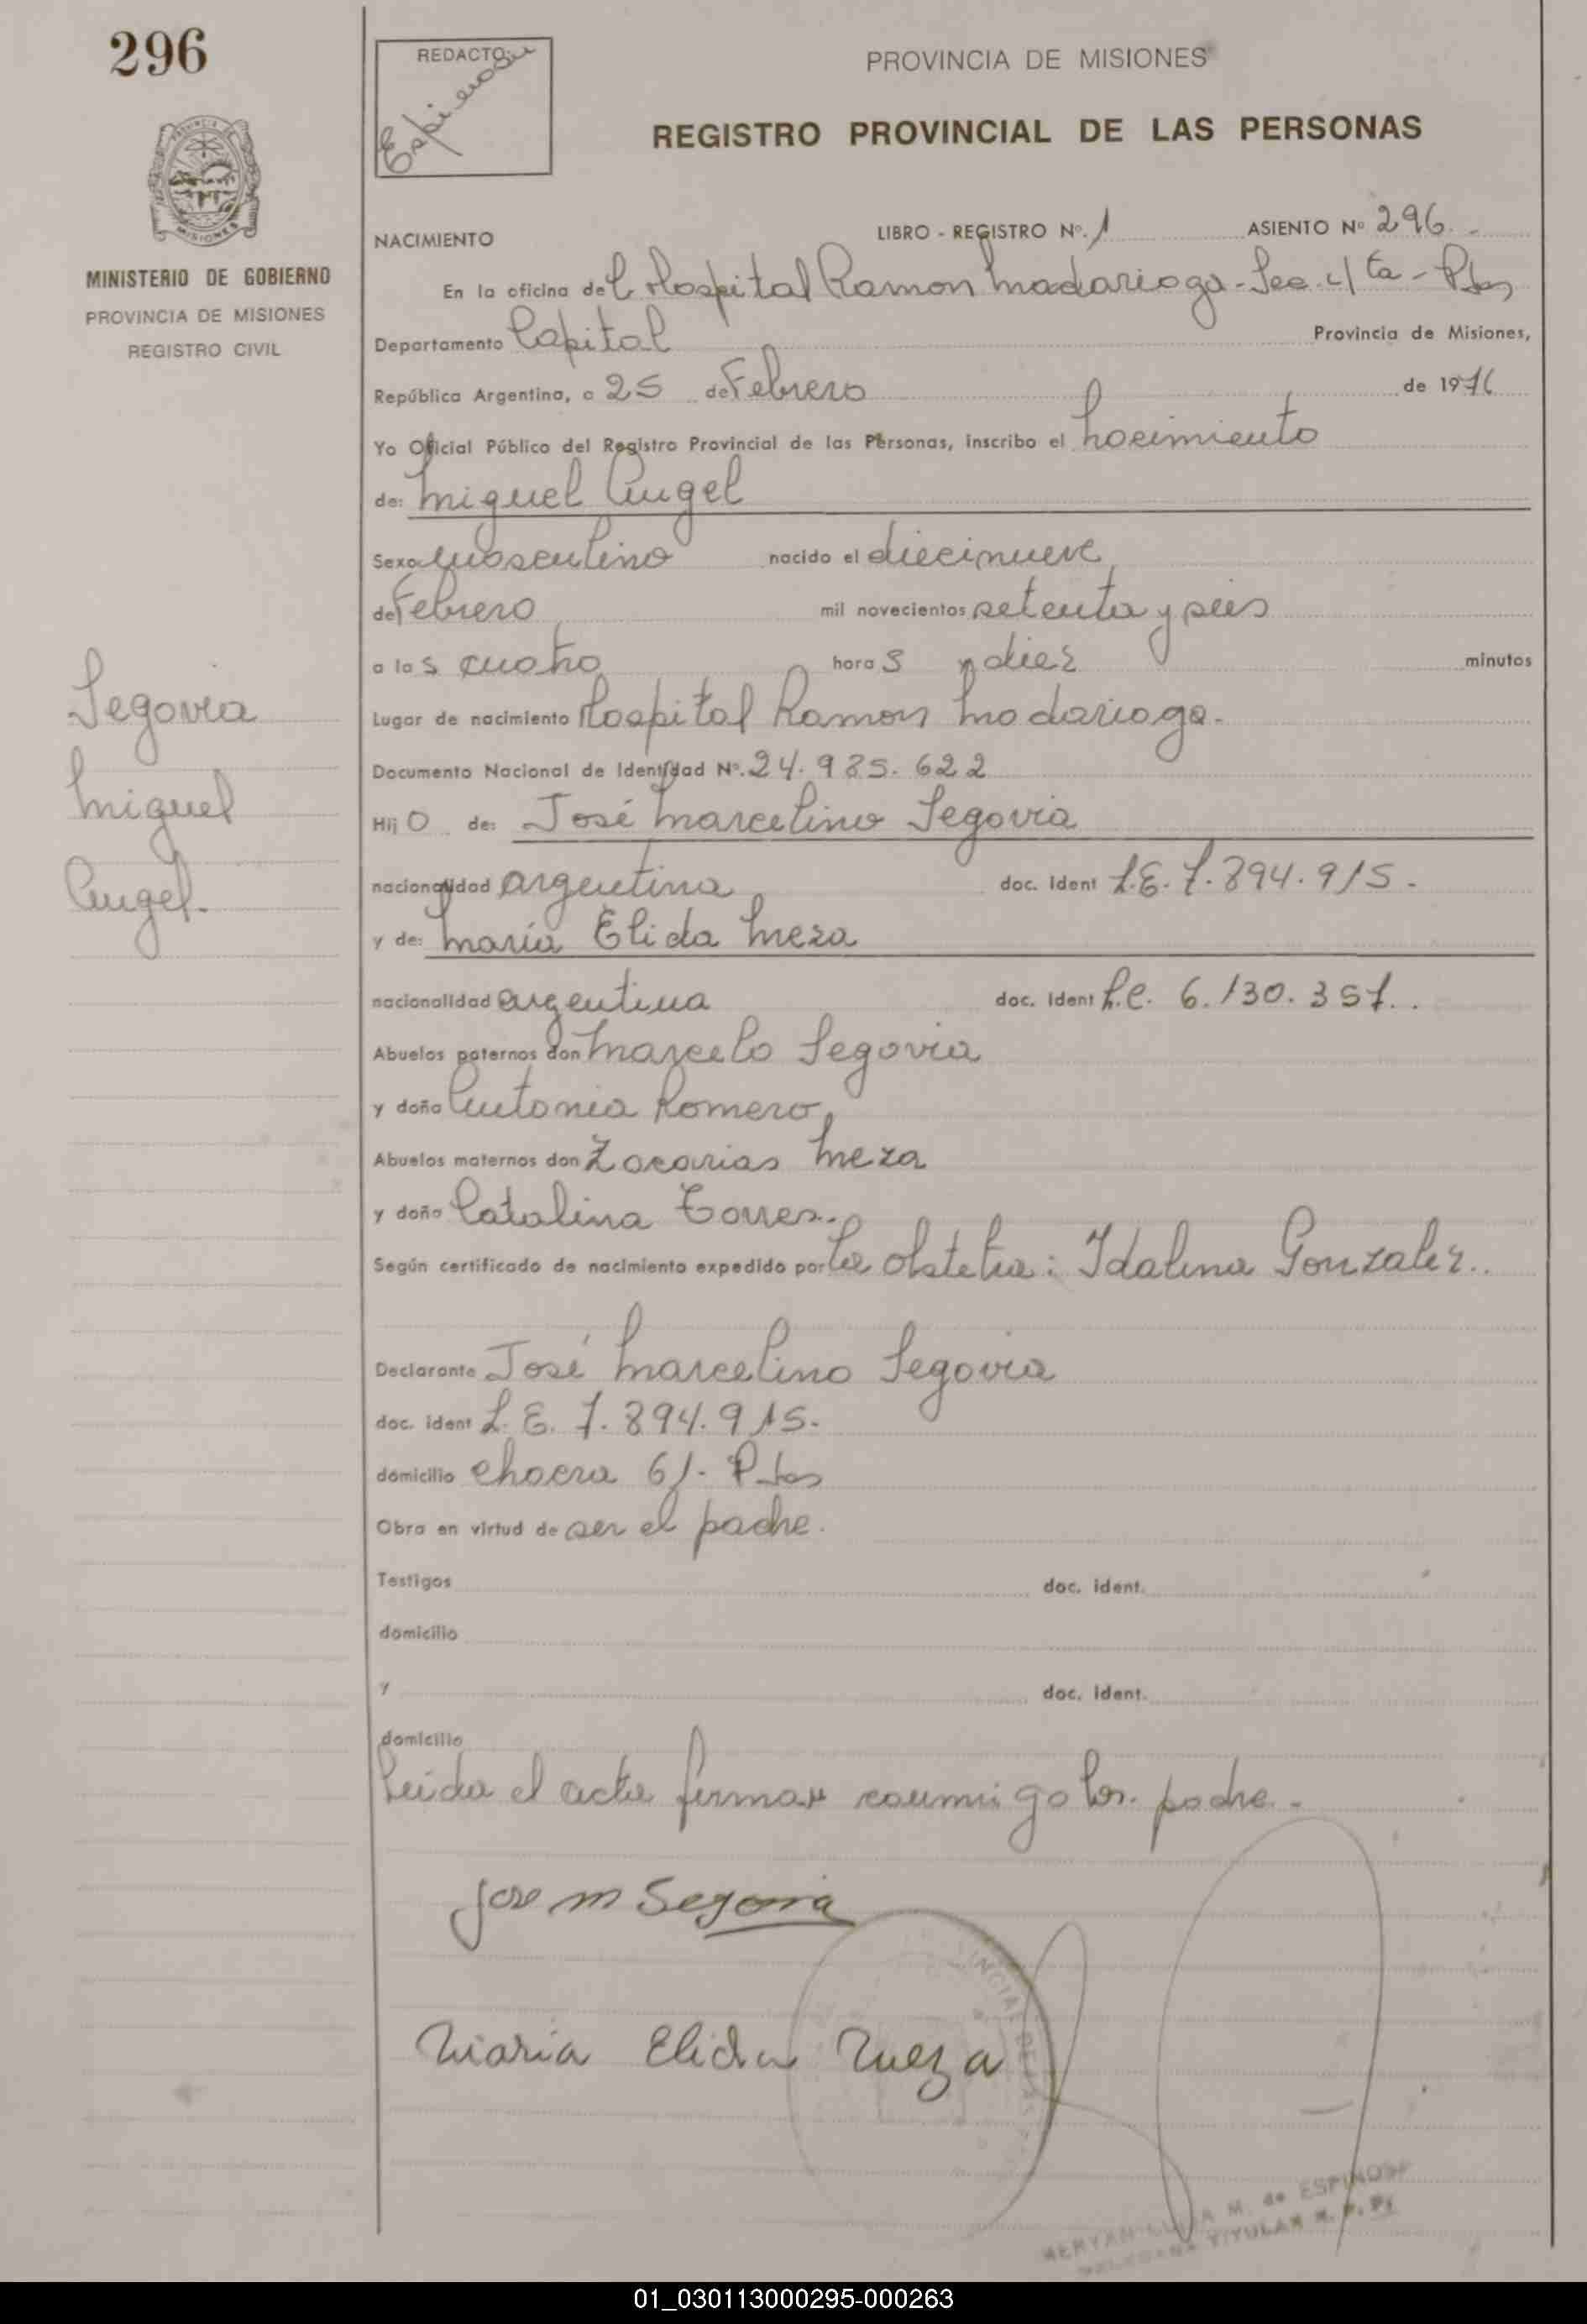 296
REDACTO:
Espinosa
PROVINCIA DE MISIONES
REGISTRO PROVINCIAL DE LAS PERSONAS
MINISTERIO DE GOBIERNO
PROVINCIA DE MISIONES
REGISTRO CIVIL
NACIMIENTO LIBRO - REGISTRO Nº. 1 ASIENTO Nº 296.-
En la oficina del Hospital Ramon Madariaga - Sec. 4ta - Pdas
Departamento Capital Provincia de Misiones,
República Argentina, a 25 de Febrero de 1976
Yo Oficial Público del Registro Provincial de las Personas, inscribo el nacimiento
de: Miguel Angel
Sexo masculino nacido el diecinueve
de Febrero mil novecientos setenta y seis
a las cuatro horas y diez minutos
Lugar de nacimiento Hospital Ramon Madariaga.
Documento Nacional de Identidad Nº. 24.985.622
Hijo de: José Marcelino Segovia
nacionalidad argentina doc. ident L.E. 7.894.915.
y de: María Elida Meza
nacionalidad argentina doc. ident L.C. 6.130.357.
Abuelos paternos don Marcelo Segovia
y doña Antonia Romero
Abuelos maternos don Zacarias Meza
y doña Catalina Torres.
Según certificado de nacimiento expedido por la obstetra: Idalina Gonzalez.
Declarante José Marcelino Segovia
doc. ident L.E. 7.894.915.
domicilio chacra 61. Pdas
Obra en virtud de ser el padre.
Testigos doc. ident.
domicilio
y doc. ident.
domicilio
Leida el acta firman conmigo los padre.-
Jose M Segovia
Maria Elida Meza
M. de ESPINOSA
TITULAR R. P. P.
Segovia
Miguel
Angel.
01_030113000295-000263